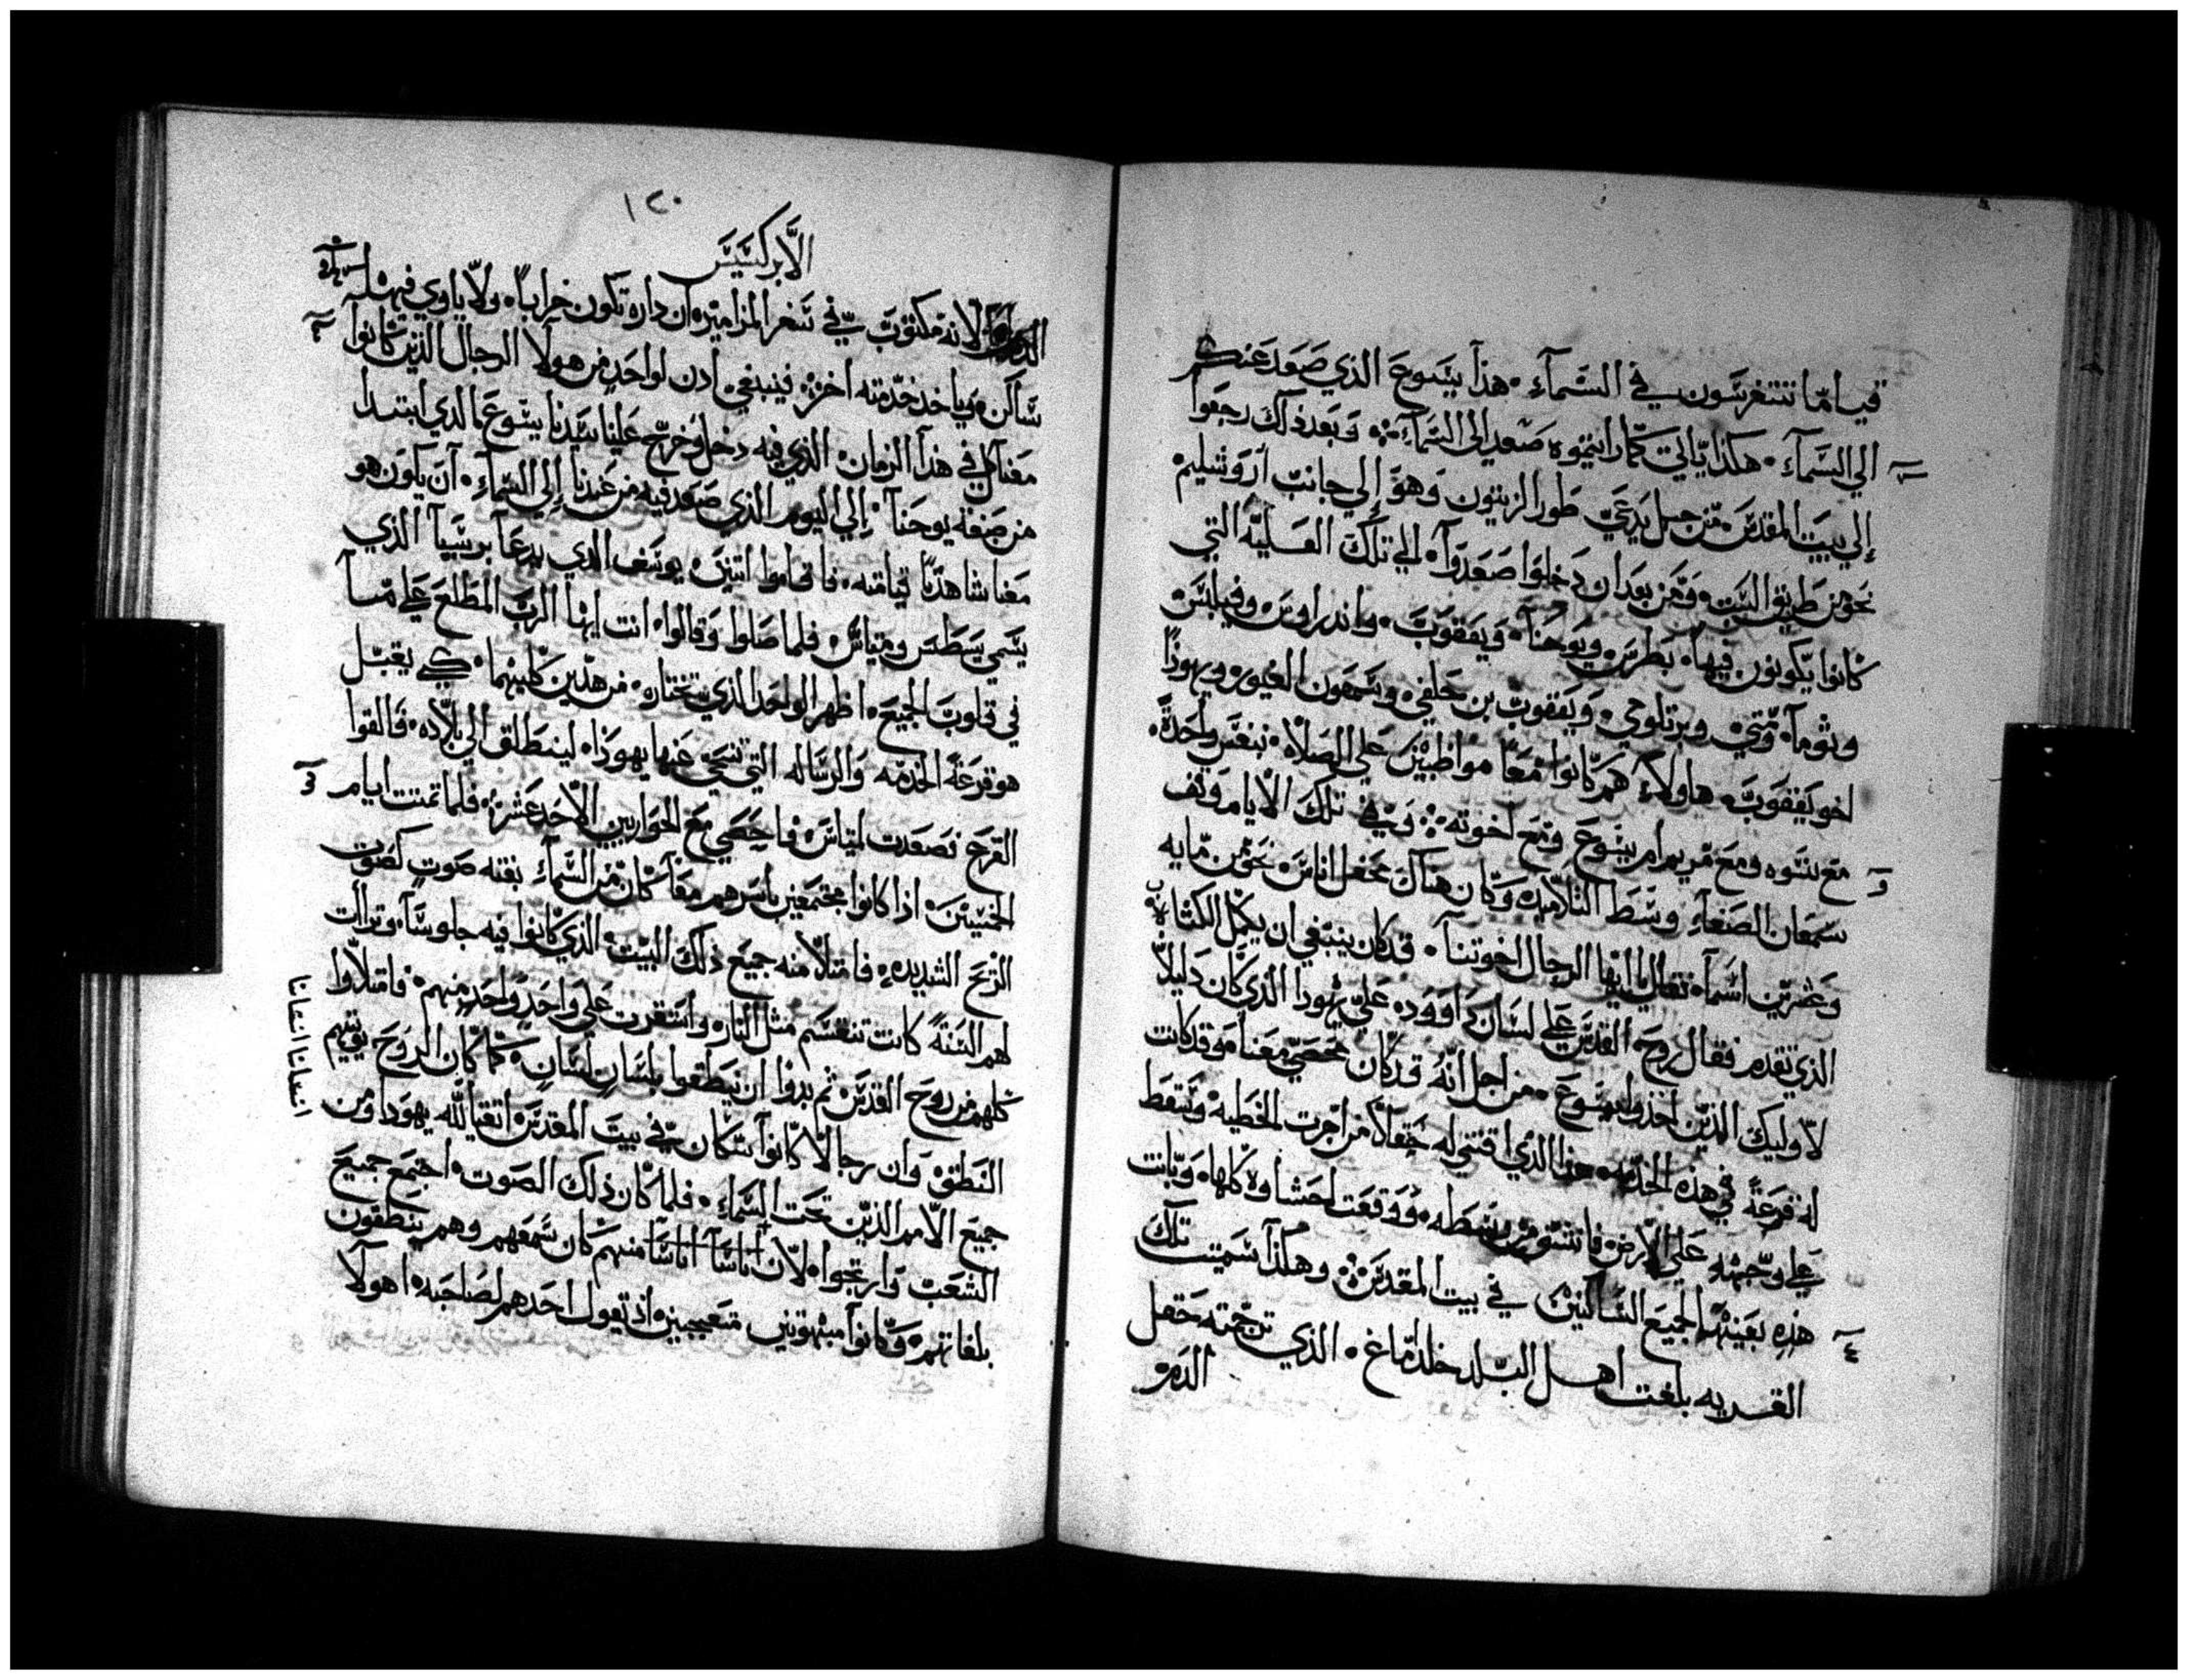 قياما تتغرسون في السماء هذا يسوع الذي صعد عنكم
الي السماء هكذا ياتي كما رايتموه صعد الى السماء وبعد ذلك رجعوا
إلي بيت المقدس من جبل يدعي طور الزيتون وهو إلي جانب اروشليم
نحو من طريق السبت ومن بعد ان دخلوا صعدوا الي تلك العليه التي
كانوا يكونون فيها بطرس ويوحنا ويعقوب واندراوس وفيلبس
وتوما ومتي وبرتلوحي ويعقوب بن حلفي وسمعون الغيور ويهوذا
اخو يعقوب هاولاء هم كانوا معا مواظبين علي الصلاه بنفس واحدة
مع نسوه ومع مريم ام يسوع ومع اخوته وفي تلك الايام وقف
سمعان الصفاء وسط التلاميذ وكان هناك محفل اناس نحو من مايه
وعشرين اسما فقال ايها الرجال اخوتنا قد كان ينبغي ان يكمل الكتاب
الذي تقدم فقال روح القدس علي لسان داوود علي يهودا الذي كان دليلا
لاوليك الذين اخذوا يسوع من اجل انه قد كان محصي معنا وقد كانت
له قرعة في هذه الخدمه هذا الذي اقتني له حقلا من اجرت الخطيه وسقط
علي وجهه علي الارض فانشق من وسطه ووقعت احشاوه كلها وبانت
هذه بعينها لجميع الساكنين في بيت المقدس وهكذا سميت تلك
القريه بلغت اهل البلد خلدماغ الذي ترجمته حقل
الدم
١٢٠
الابركسيس
الدم لانه مكتوب في سفر المزامير ان داره تكون خرابا ولا ياوي فيها
ساكن وياخذ خدمته اخر فينبغي ادن لواحد من هولا الرجال الذين كانوا
معنا في هذا الزمان الذي فيه دخل وخرج علينا سيدنا يسوع الذي ابتدا
من صبغة يوحنا إلي اليوم الذي صعد فيه من عندنا إلي السماء أن يكون هو
معنا شاهدا قيامته فاقاموا اتنين يوسف الدي يدعا برسبا الذي
يسمي يسطس ومتياس فلما صلوا وقالوا انت ايها الرب المطلع علي ما
في قلوب الجميع اظهر الواحد الذي تختاره من هدين كليهما كي يقبل
هو قرعة الخدمه والرساله التي تنحي عنها يهوذا لينطلق الي بلاده فالقوا
القرع فصعدت لمتياس فاحصي مع الحواريين الاحد عشر فلما تمت ايام
الخمسين اذا كانوا مجتمعين باسرهم معا كان من السماء بغته صوت كصوت
الريح الشديده فامتلا منه جميع ذلك البيت الذي كانوا فيه جلوسا وترات
لهم السنة كانت تنقسم مثل النار واستقرت علي واحد واحد منهم فامتلاوا
كلهم من روح القدس ثم بدوا ان ينطقوا بلسان لسان كما كان الروح يوتيهم
النطق وان رجالا كانوا سكان في بيت المقدس اتقيا لله يهودا ومن
جميع الامم الذين تحت السماء فلما كان ذلك الصوت اجتمع جميع
الشعب وارتجوا لان اناسا اناسا منهم كان سمعهم وهم ينطقون
بلغاتهم وكانوا مبهوتين متعجبين اذ يقول احدهم لصاحبه اهولا
انسانا انسانا